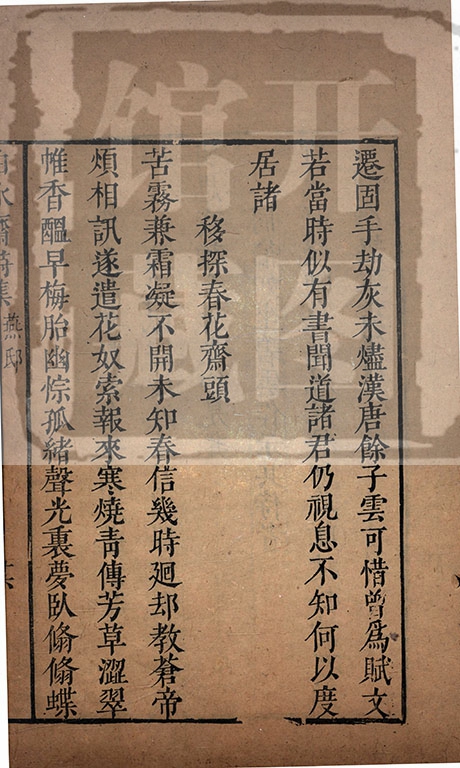 遷固手劫灰未燼漢唐餘子雲可惜曾爲賦文
若當時似有書聞道諸君仍視息不知何以度
居諸
移探春花齋頭
苦霧兼霜凝不開未知春信幾時廻却教蒼帝
煩相訊遂遣花奴索報來寒燒青傳芳草澀翠
帷香醞早梅胎幽悰孤緒聲光裏夢臥翛翛蝶
齋詩集 燕邸
开图
馆藏